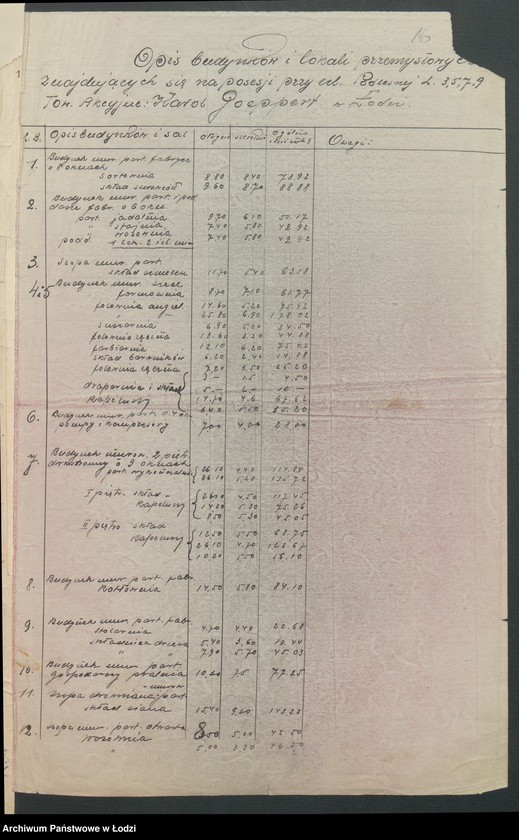 16
Opis budynków i lokali przemysłowych
znajdujących się na posesji przy ul. L. 3, 5, 7, 9
Tow. Akcyjne: Karol Goeppert w Łodzi.
L.B. Opis budynków i sal długość szerok. Uwagi:
1. Budynek mur. part. fabryczn.
o oknach
Sortownia 8.80 8.40 73.92
skład surowców 9.60 8.70 88.88
2. Budynek mur. part. i pod
part. jadalnia 9.70 6.10 59.17
" stajnia 7.40 5.80 42.92
podd. 7.40 5.80 42.92
3. Szopa mur. part.
skład 11.70 5.40 63.18
4 i 5 Budynek mur.
formownia 8.70 7.10 61.77
folownia angiel. 14.60 5.20 75.92
" 25.80 6.90 178.02
suszarnia 6.90 5.00 34.50
folownia ręczna 13.60 3.30 44.88
farbiarnia 12.10 6.20 75.02
skład barwników 6.20 2.40 14.88
folownia ręczna 7.20 3.50 25.20
3.— 1.5 4.50
draparnia i skład 5.— 2.— 10.—
kapeluszy 14.70 4.6 67.62
6. Budynek mur. part.
pompy i kompresory 7.00 4.00 28.00
7. Budynek murow. 2 piętr.
o 9 oknach 26.10 4.40 114.84
part. wykończalnia 26.10 5.20 135.72
I piętr. skład 26.10 4.50 117.45
kapeluszy 14.20 5.30 75.26
8.50 5.30 45.05
II piętro skład 12.50 5.50 68.75
kapeluszy 26.10 4.70 122.67
10.20 5.50 56.10
8. Budynek mur. part. fabr.
Kotłownia 14.50 5.80 84.10
9. Budynek mur. part. fabr.
stolarnia 4.70 4.40 20.68
składnica drzewa 5.40 3.60 19.44
" " 7.90 5.70 45.03
10. Budynek mur. part.
gospodarczy pralnia 10.30 7.5 77.25
11. Szopa part.
skład siana 15.40 9.30 143.22
12. Szopa mur. part. otwarta
wozownia 8.50 5.00 42.50
" 5.00 3.30 16.50
Archiwum Państwowe w Łodzi